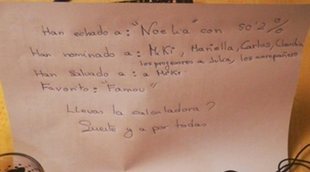 Han echado a: "Noelia" con 50'2%
Han nominado a: Miki, Marilia, Carlos, Claudia,
los profesores a Julia, los compañeros
Han salvado a: a Miki
Favorito: "Famous"
Llevas la calculadora?
Suerte y a por todas